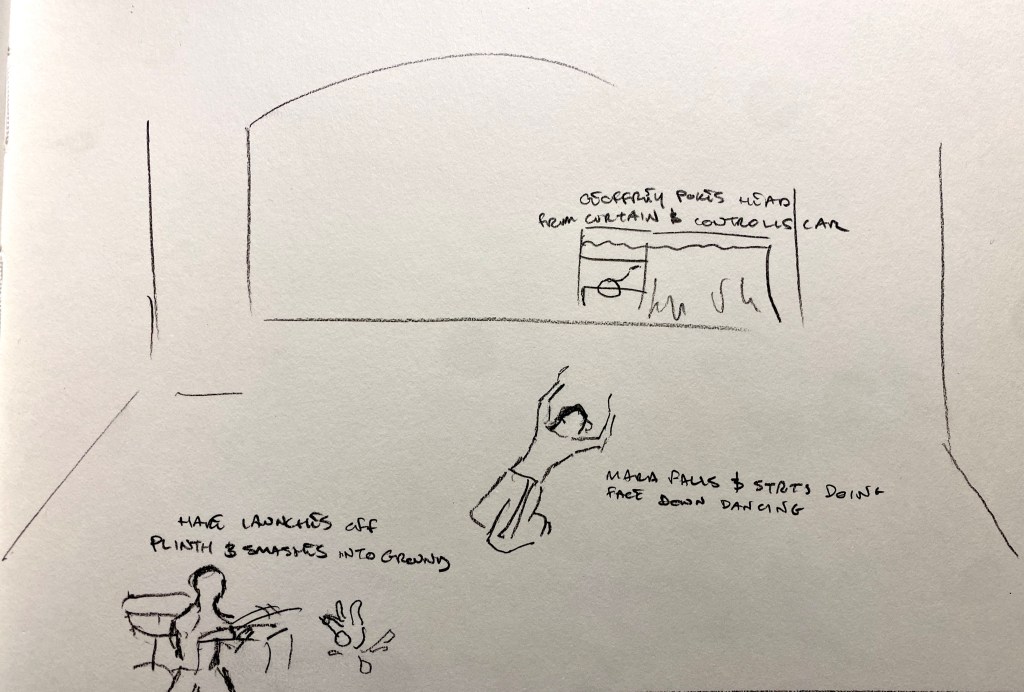 GEOFFREY POKES HEAD
FROM CURTAIN & CONTROLLS CAR
MARA FALLS & STRTS DOING
FACE DOWN DANCING
HARE LAUNCHES OFF
PLINTH & SMASHES INTO GROUND